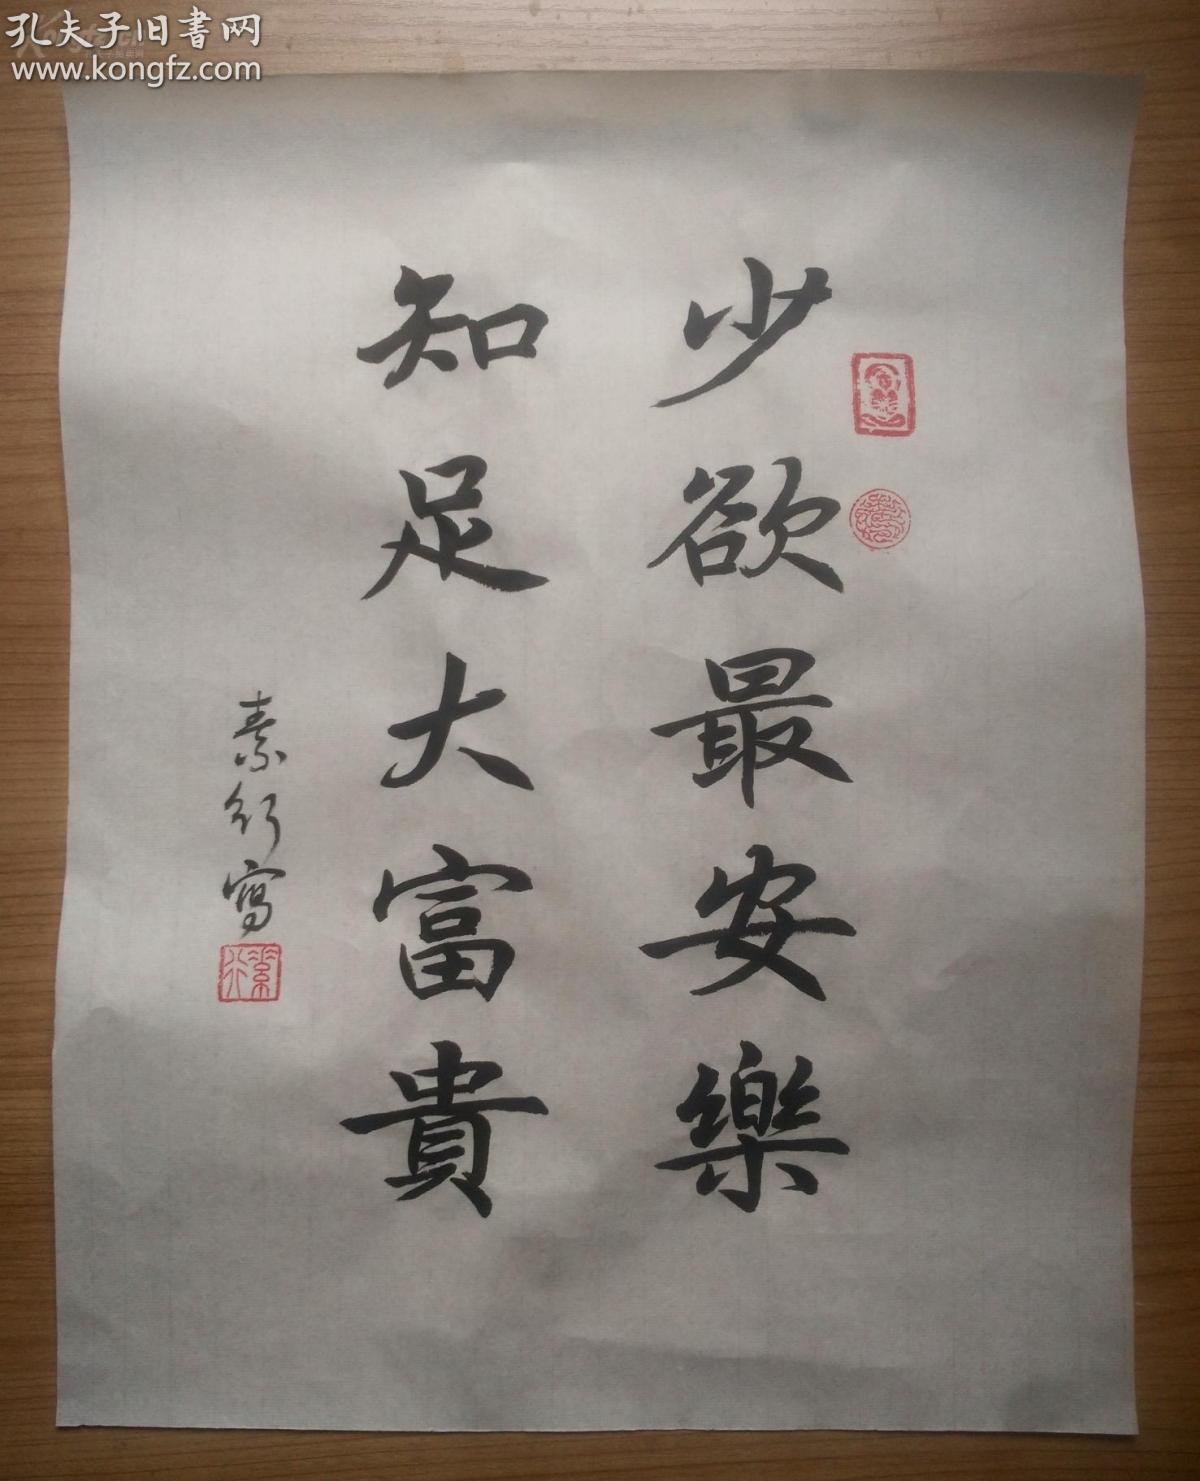 孔夫子旧書网
www.kongfz.com
少欲最安樂
知足大富貴
素行寫
素行